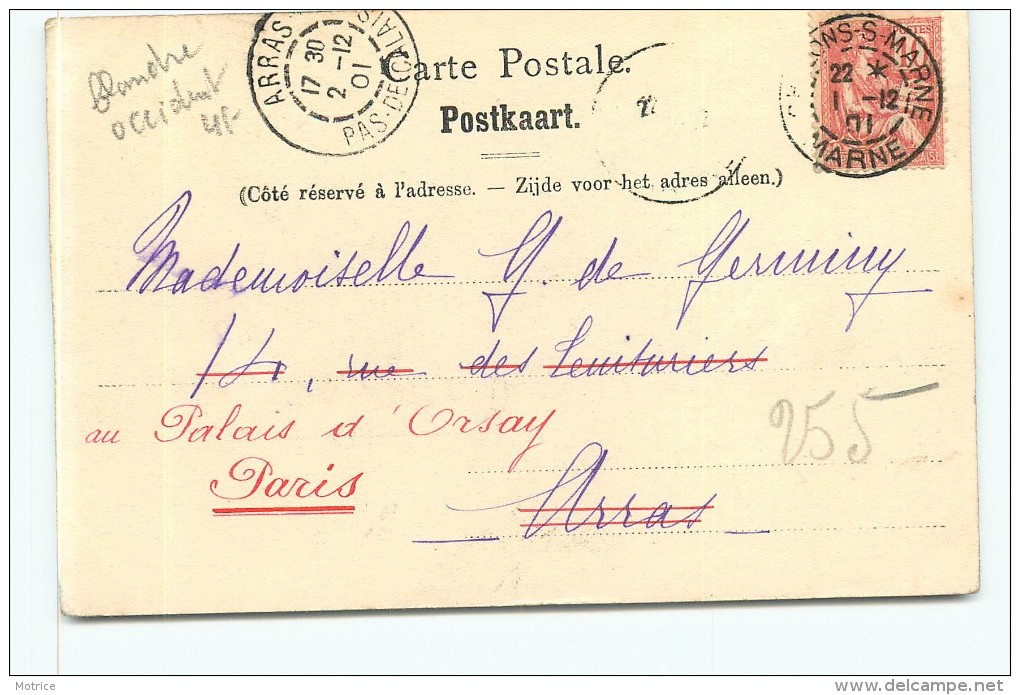 Flandre
occident
ARRAS
17 30
2 -12
01
PAS-DE-CALAIS
Carte Postale.
Postkaart.
22 *
1 -12
01
S-MARNE
MARNE
(Côté réservé à l'adresse. — Zijde voor het adres alleen.)
Mademoiselle G. de Germiny
14, rue des Teinturiers
au Palais d'Orsay
Paris
Arras
255
Motrice
delcampe.net